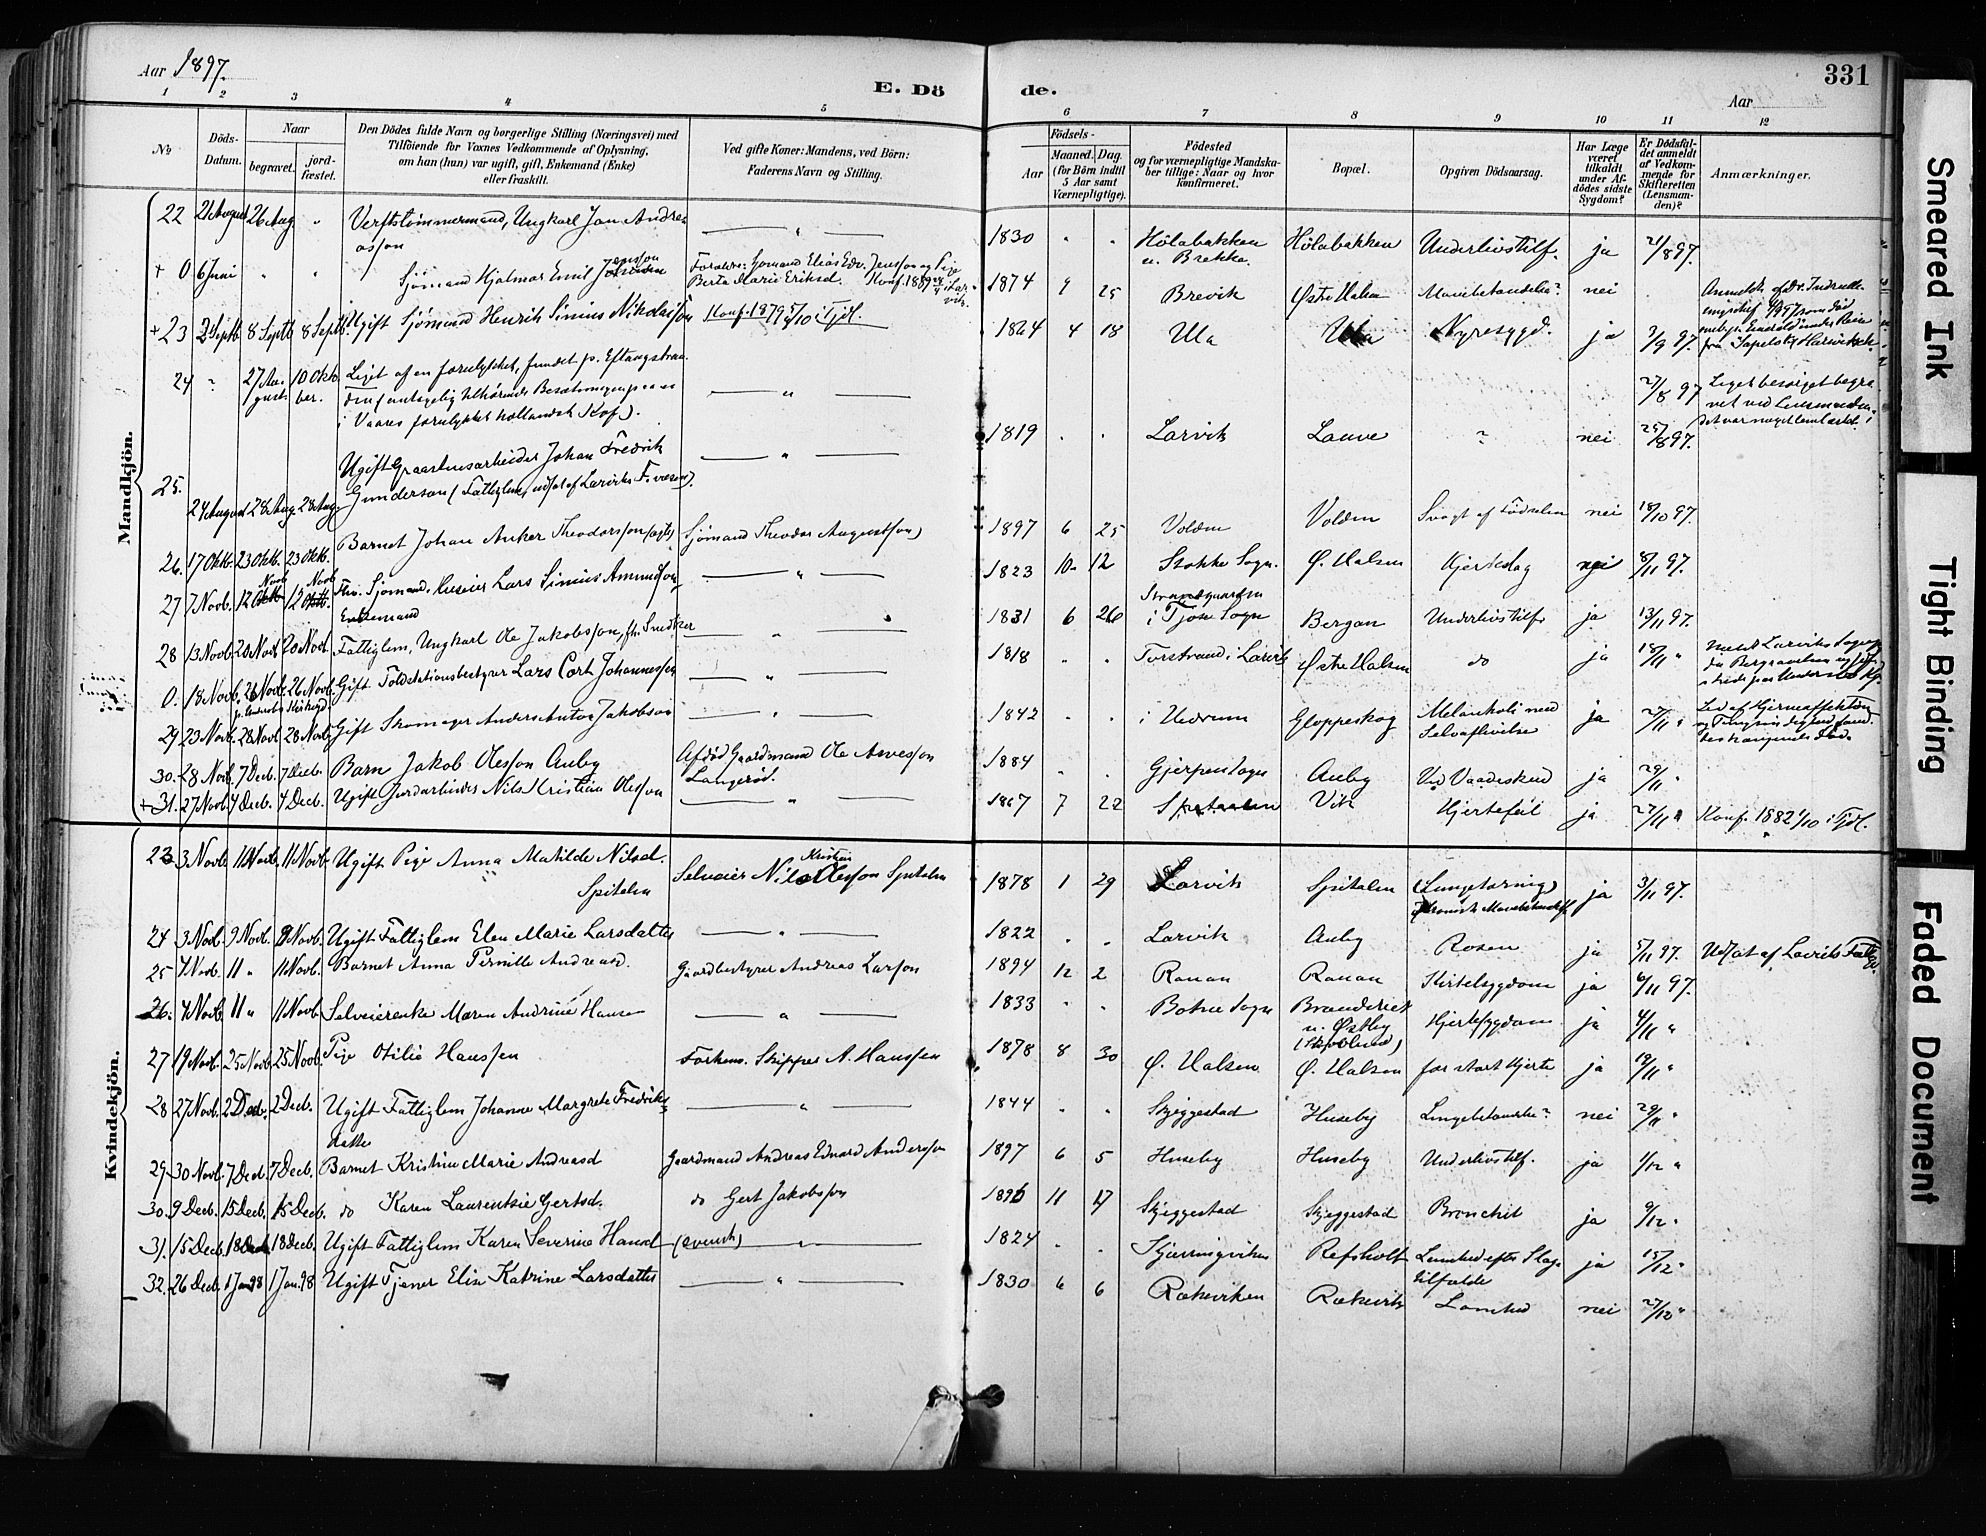 Aar 1897.
E. Döde.
Aar
331
1 2 3 4 5 6 7 8 9 10 11 12
No.
Döds-Datum.
Naar
begravet.
jord-fæstet.
Den Dödes fulde Navn og borgerlige Stilling (Næringsvei) med
Tilföiende for Voxnes Vedkommende af Oplysning,
om han (hun) var ugift, gift, Enkemand (Enke)
eller fraskilt.
Ved gifte Koner: Mandens, ved Börn:
Faderens Navn og Stilling.
Födsels-
Aar
Maaned. Dag.
(for Börn indtil
5 Aar samt
Værnepligtige).
Födested
og for værnepligtige Mandska-
ber tillige: Naar og hvor
konfirmeret.
Bopæl.
Opgiven Dödsaarsag.
Har Læge
været
tilkaldt
under Af-
dödes sidste
Sygdom?
Er Dödsfal-
det anmeldt
af Vedkom-
mende for
Skifteretten
(Lensman-
den)?
Anmærkninger.
Mandkjön.
22 21 August 26 Aug. " Verftstømmermand, Ungkarl Jan Andreasson " 1830 " " Hölabakken u. Brekka Hölabakken Underlivstilf. ja 21/8 97.
+ 0 6 Juni " " Sjømand Hjalmar Emil Jensson Forældre: Gjømand Elias Edv. Jensson og Pige Berta Marie Eriksd. Konf. 1889 i Larvik. 1874 9 25 Brevik Østre Halsen nei
+ 23 2 Septb. 8 Septb. 8 Septb. Ugift Sjømand Henrik Sinius Nikolaisson Konf. 1879 5/10 i Tjöl. 1864 4 18 Ula Ula Nyresygd. ja 3/9 97.
24 ? 27 August. 10 Oktober. Liget af en forulykket, fundet p. Eftangstranden (antagelig tilhørende Besætningen paa en i Vaares forulykket hollandsk Kof). " 27/8 97 Liget besørget begravet ved Lensmanden, det var noget lemlæstet.
25. 24 August 28 Aug. 28 Aug. Ugift Graastensarbeider Johan Fredrik Gunderson (Fattiglem, udsat af Larviks F.væsen). " 1819 " " Larvik Lauve ? nei 25/8 97.
26. 17 Oktb. 23 Oktb. 23 Oktb. Barnet Johan Anker Theodorsson (ægte) Sjømand Theodor Augustsson 1897 6 25 Volden Volden Svagt af Fødselen nei 18/10 97.
27 7 Novb. 12 Novb 12 Novb Fhv. Sjømand, Huseier Lars Sinius Amundson, Enkemand " 1823 10 12 Stokke Sogn. Ø. Halsen Hjerteslag nei 8/11 97.
28 13 Novb. 20 Novb. 20 Novb. Fattiglem, Ungkarl Ole Jakobsson, fh. Snedker " 1831 6 26 i Tjöme Sogn Bergan Underlivstilf. ja 13/11 97.
0. 18 Novb. 26 Novb. 26 Novb. Gift Toldstationsbestyrer Lars Cort Johannessen " 1818 " " Torstrand i Larvik Østre Halsen do ja 18/11 "
29 23 Novb. 28 Novb. 28 Novb. Gift Skomager Anders Anton Jakobson " 1842 " " i Hedrum Gloppeskog Melankoli med Selvaflivelse ja 27/11 "
30. 28 Novb. 7 Decb. 7 Decb. Barn Jakob Olesson Auby Afdød Gaardmand Ole Arvesson Langerød. 1884 " " Gjerpen Sogn Auby Ved Vaadeskud ja 29/11 "
+ 31. 27 Novb. 4 Decb. 4 Decb. Ugift Jordarbeider Nils Kristian Olesson " 1867 7 22 Spetalen Vik Hjertefeil ja 27/11 " Konf. 1882 1/10 i Tjöl.
Kvindekjön.
23 3 Novb. 11 Novb. 11 Novb. Ugift Pige Anna Matilde Nilsd. Spitalen Selveier Nils Kristian Olesson Spitalen 1878 1 29 Larvik Spitalen (Lungetæring) ja 3/11 97.
24 3 Novb. 9 Novb. 9 Novb. Ugift Fattiglem Elen Marie Larsdatter " 1822 " " Larvik Auby Rosen ja 5/11 97. Udsat af Larviks Fattigv.
25 4 Novb. 11 " 11 Novb. Barnet Anna Pernille Andreasd. Gaardbestyrer Andreas Larson 1894 12 2 Ranan Ranan Kirtelsygdom ja 6/11 97.
26. 4 Novb. 11 " 11 Novb. Selveierenke Maren Andrine Hansen " 1833 " " Botne Sogn u. Østby Hjertesygdom ja 4/11 "
27 19 Novb. 25 Novb. 25 Novb. Pige Otilie Hanssen Forhenv. Skipper A. Hanssen 1878 8 30 Ø. Halsen Ø. Halsen for stort Hjerte ja 19/11 "
28 27 Novb. 2 Decb. 2 Decb. Ugift Fattiglem Johanne Margrete Fredriksdatter " 1844 " " Skjeggestad Huseby Lungebetændelse? nei 29/11 "
29 30 Novb. 7 Decb. 7 Decb. Barnet Kristine Marie Andreasd Gaardmand Andreas Edvard Andersson 1897 6 5 Huseby Huseby Underlivstilf. ja 1/12 "
30. 9 Decb. 15 Decb. 15 Decb. do Karen Laurentsie Gertsd. do Gert Jakobsson 1896 11 17 Skjeggestad Skjeggestad Bronchit ja 9/12 "
31. 15 Decb. 18 Decb. 18 Decb. Ugift Fattiglem Karen Severine Hansd (svensk) " 1824 " " Kjerringviken Refsholt Lamhed efter Slagtilfælde ja 15/12 "
32. 26 Decb. 1 Jan 98 1 Jan. 98 Ugift Tjener Elin Katrine Larsdatter " 1830 6 6 Rækeviken Rækevik Lamhed nei 27/12 "
Smeared Ink
Tight Binding
Faded Document